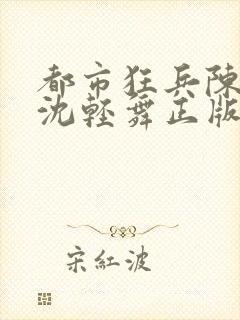 都市狂兵陳
沈輕舞正版
宋紅波